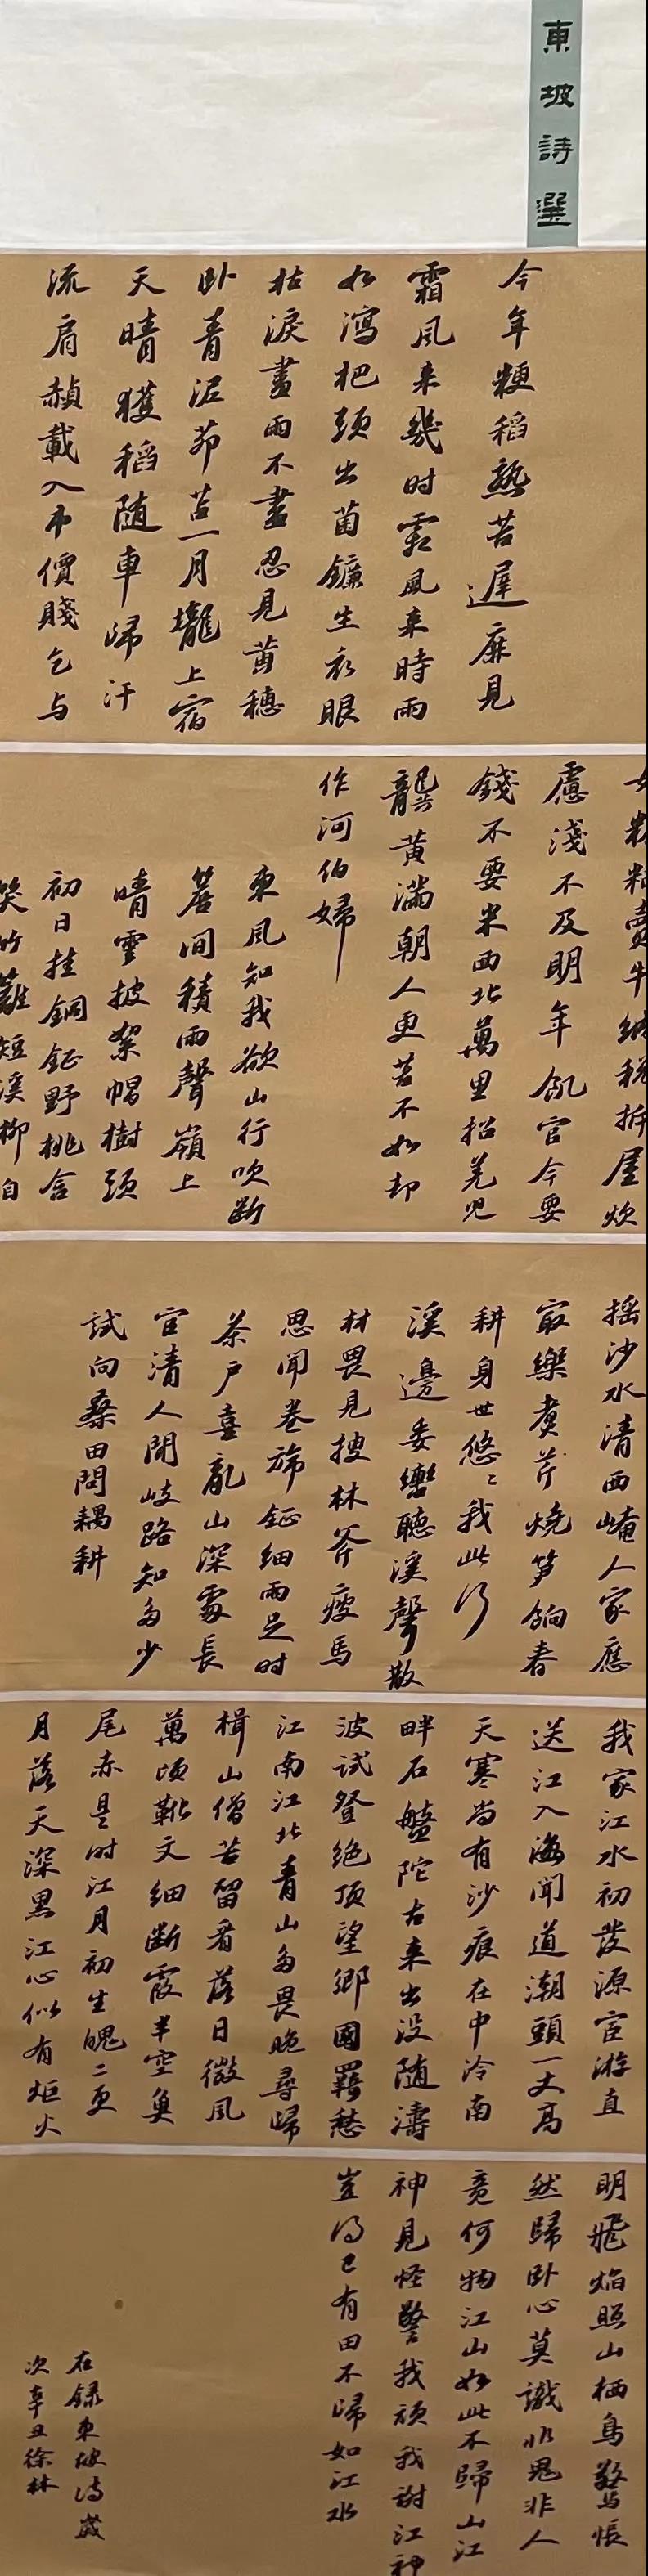 東坡詩選
今年粳稻熟苦遲庶見
霜風來幾時霜風來時雨
如瀉杷頭出菌鐮生衣眼
枯淚盡雨不盡忍見黃穗
臥青泥茆苫一月壠上宿
天晴獲稻隨車歸汗
流肩赬載入市價賤乞与
如粞糶賣牛納稅拆屋炊
慮淺不及明年飢官今要
錢不要米西北萬里招羌兒
龔黃滿朝人更苦不如却
作河伯婦
東風知我欲山行吹斷
簷間積雨聲嶺上
晴雲披絮帽樹頭
初日挂銅鉦野桃含
笑竹籬短溪柳自
搖沙水清西崦人家應
最樂煮芹燒笋餉春
耕身世悠〻我此行
溪邊委轡聽溪聲散
材畏見搜林斧瘦馬
思聞卷旆鉦細雨足時
茶戶喜亂山深處長
官清人間岐路知多少
試向桑田問耦耕
我家江水初發源宦游直
送江入海聞道潮頭一丈高
天寒尚有沙痕在中泠南
畔石盤陀古來出沒隨濤
波試登絕頂望鄉國羈愁
江南江北青山多畏晚尋歸
楫山僧苦留看落日微風
萬頃靴文細斷霞半空魚
尾赤是時江月初生魄二更
月落天深黑江心似有炬火
明飛焰照山栖鳥驚悵
然歸臥心莫識非鬼非人
竟何物江山如此不歸山江
神見怪警我頑我謝江神
豈得已有田不歸如江水
右錄東坡詩歲
次辛丑徐林